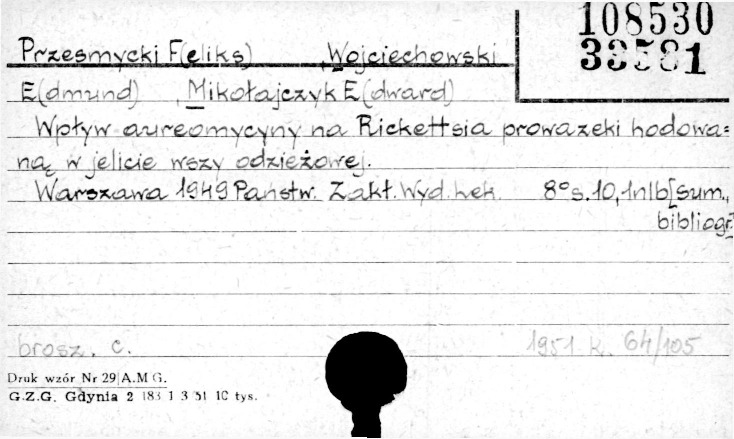 108530
33581
Przesmycki F(eliks) , Wojciechowski
E(dmund) , Mikołajczyk E(dward)
Wpływ aureomycyny na Rickettsia prowazeki hodowa=
ną w jelicie wszy odzieżowej.
Warszawa 1949 Państw. Zakł. Wyd. Lek. 8° s. 10, 1nlb [sum.,
bibliogr.
brosz. c. 1951 k. 64/105
Druk wzór Nr 29 A.M G.
G.Z.G. Gdynia 2 183 1 3 51 10 tys.